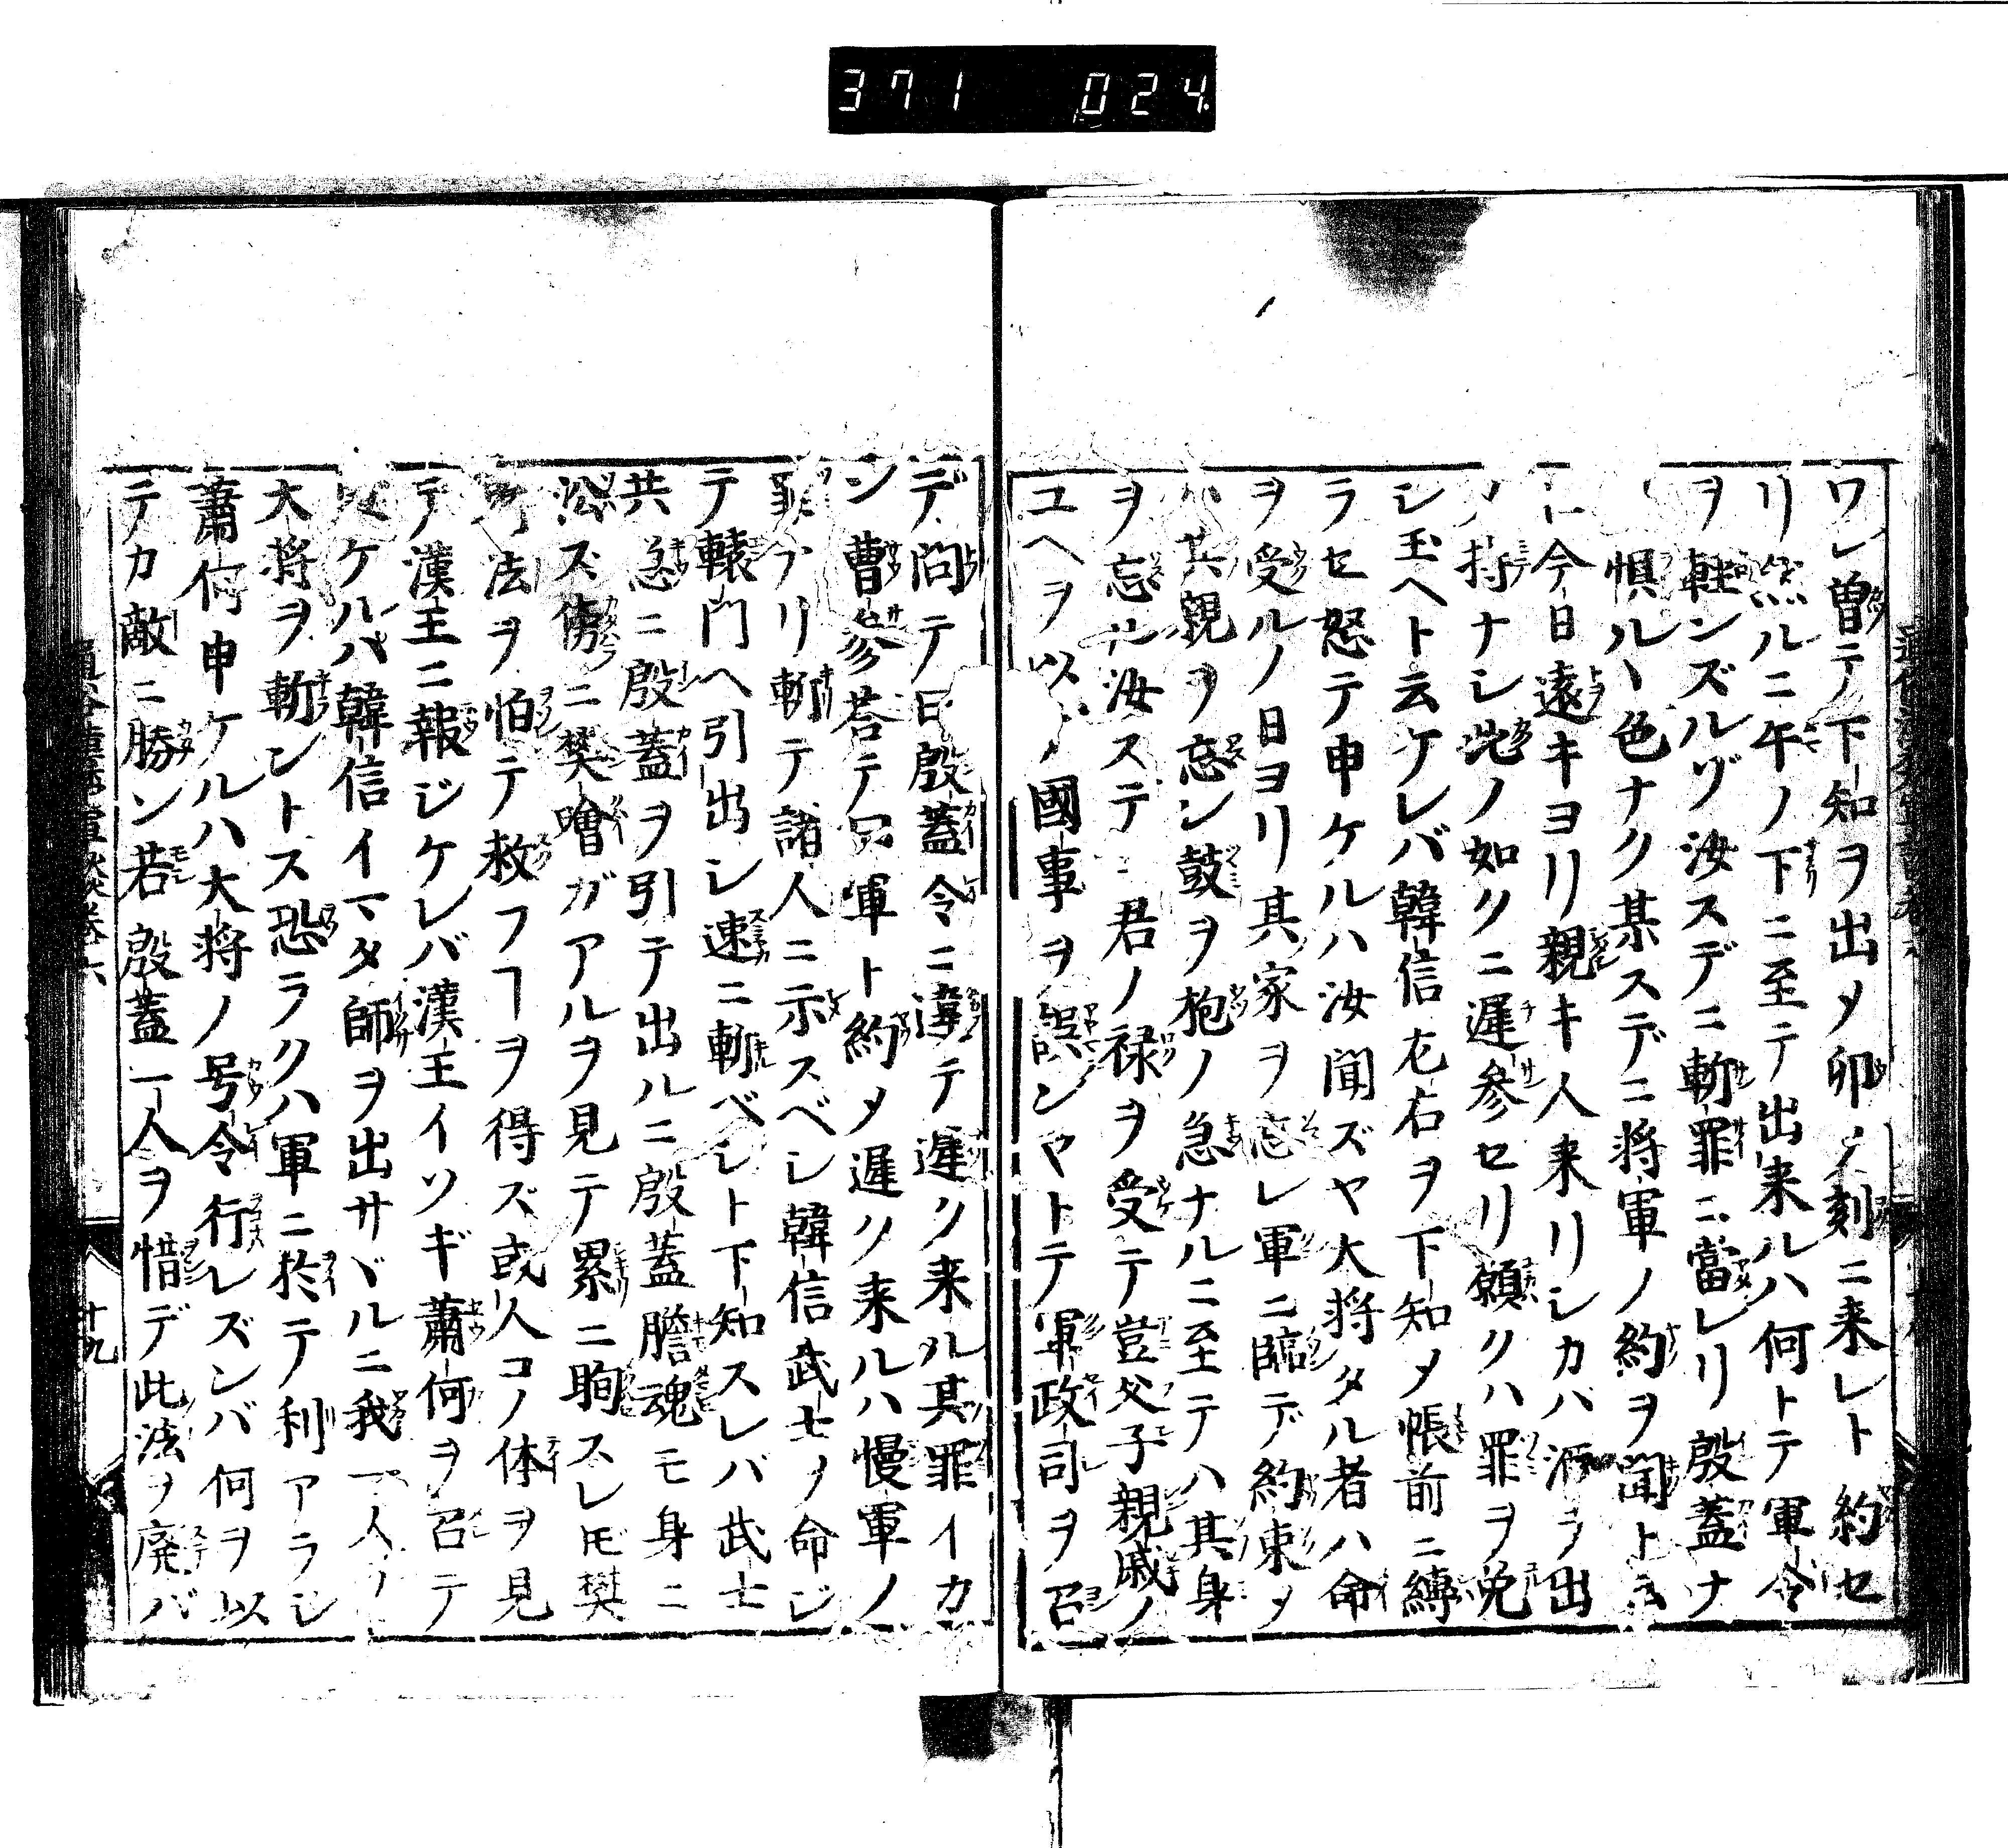 371 024
ワレ曽テ下知ヲ出メ卯ノ刻ニ来レト約セ
リ然ルニ午ノ下ニ至テ出来ルハ何トテ軍令
ヲ軽ンズルゾ汝スデニ斬罪ニ當レリ殷蓋ナ
惧ルヽ色ナク某スデニ将軍ノ約ヲ聞ト云
今日遠キヨリ親キ人来リシカバ酒ヲ出
ノ持ナシ此ノ如クニ遅参セリ願クハ罪ヲ免
シ玉ヘト云ケレバ韓信左右ヲ下知メ帳前ニ縛
ラセ怒テ申ケルハ汝聞ズヤ大将タル者ハ命
ヲ受ルノ日ヨリ其家ヲ忘レ軍ニ臨デ約束メ
ハ其親ヲ忘ン鼓ヲ枹ノ急ナルニ至テハ其身
ヲ忘ル汝ステニ君ノ禄ヲ受テ豈父子親戚ノ
ユヘヲ以 國事ヲ誤ンヤトテ軍政司ヲ召
デ問テ曰殷蓋令ニ違テ遅ク来ル其罪イカ
ン曹参荅テ曰軍ト約メ遅ク来ルハ慢軍ノ
罪アリ斬テ諸人ニ示スベシ韓信武士ノ命ジ
テ轅門ヘ引出シ速ニ斬ベシト下知スレバ武士
共急ニ殷蓋ヲ引テ出ルニ殷蓋膽魂モ身ニ
㳂ズ傍ニ樊噲ガアルヲ見テ累ニ眴スレ𪜈樊
法ヲ怕テ救フヿヲ得ズ或人コノ体ヲ見
テ漢王ニ報ジケレバ漢王イソギ蕭何ヲ召テ
ケルハ韓信イマタ師ヲ出サヾルニ我一人ノ
大将ヲ斬ントス恐ラクハ軍ニ於テ利アラシ
蕭何申ケルハ大将ノ号令行レズンバ何ヲ以
テカ敵ニ勝ン若殷蓋一人ヲ惜デ此法ヲ廃バ
十九